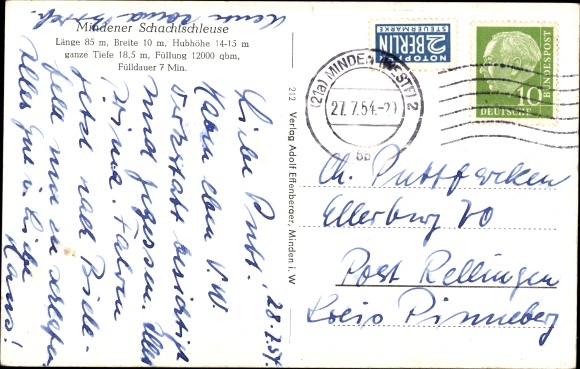 Mindener Schachtschleuse
Länge 85 m, Breite 10 m, Hubhöhe 14-15 m
ganze Tiefe 18,5 m, Füllung 12000 qbm,
Fülldauer 7 Min.
212 Verlag Adolf Effenberger, Minden i. W.
NOTOPFER
2 BERLIN
STEUERMARKE
DEUTSCHE
BUNDESPOST
10
(21a) MINDEN (WESTF) 2
27.7.54.-20
bb
28.7.54.
Liebe Putt!
Haben eben V.W.
Werkstatt besichtigt
und gegessen. Alles
prima. Fahren
jetzt nach Biele-
feld um zu
Alles Gute in Liebe
Hans!
Ch. Puttfarcken
Ellerburg 70
Post Rellingen
Kreis Pinneberg